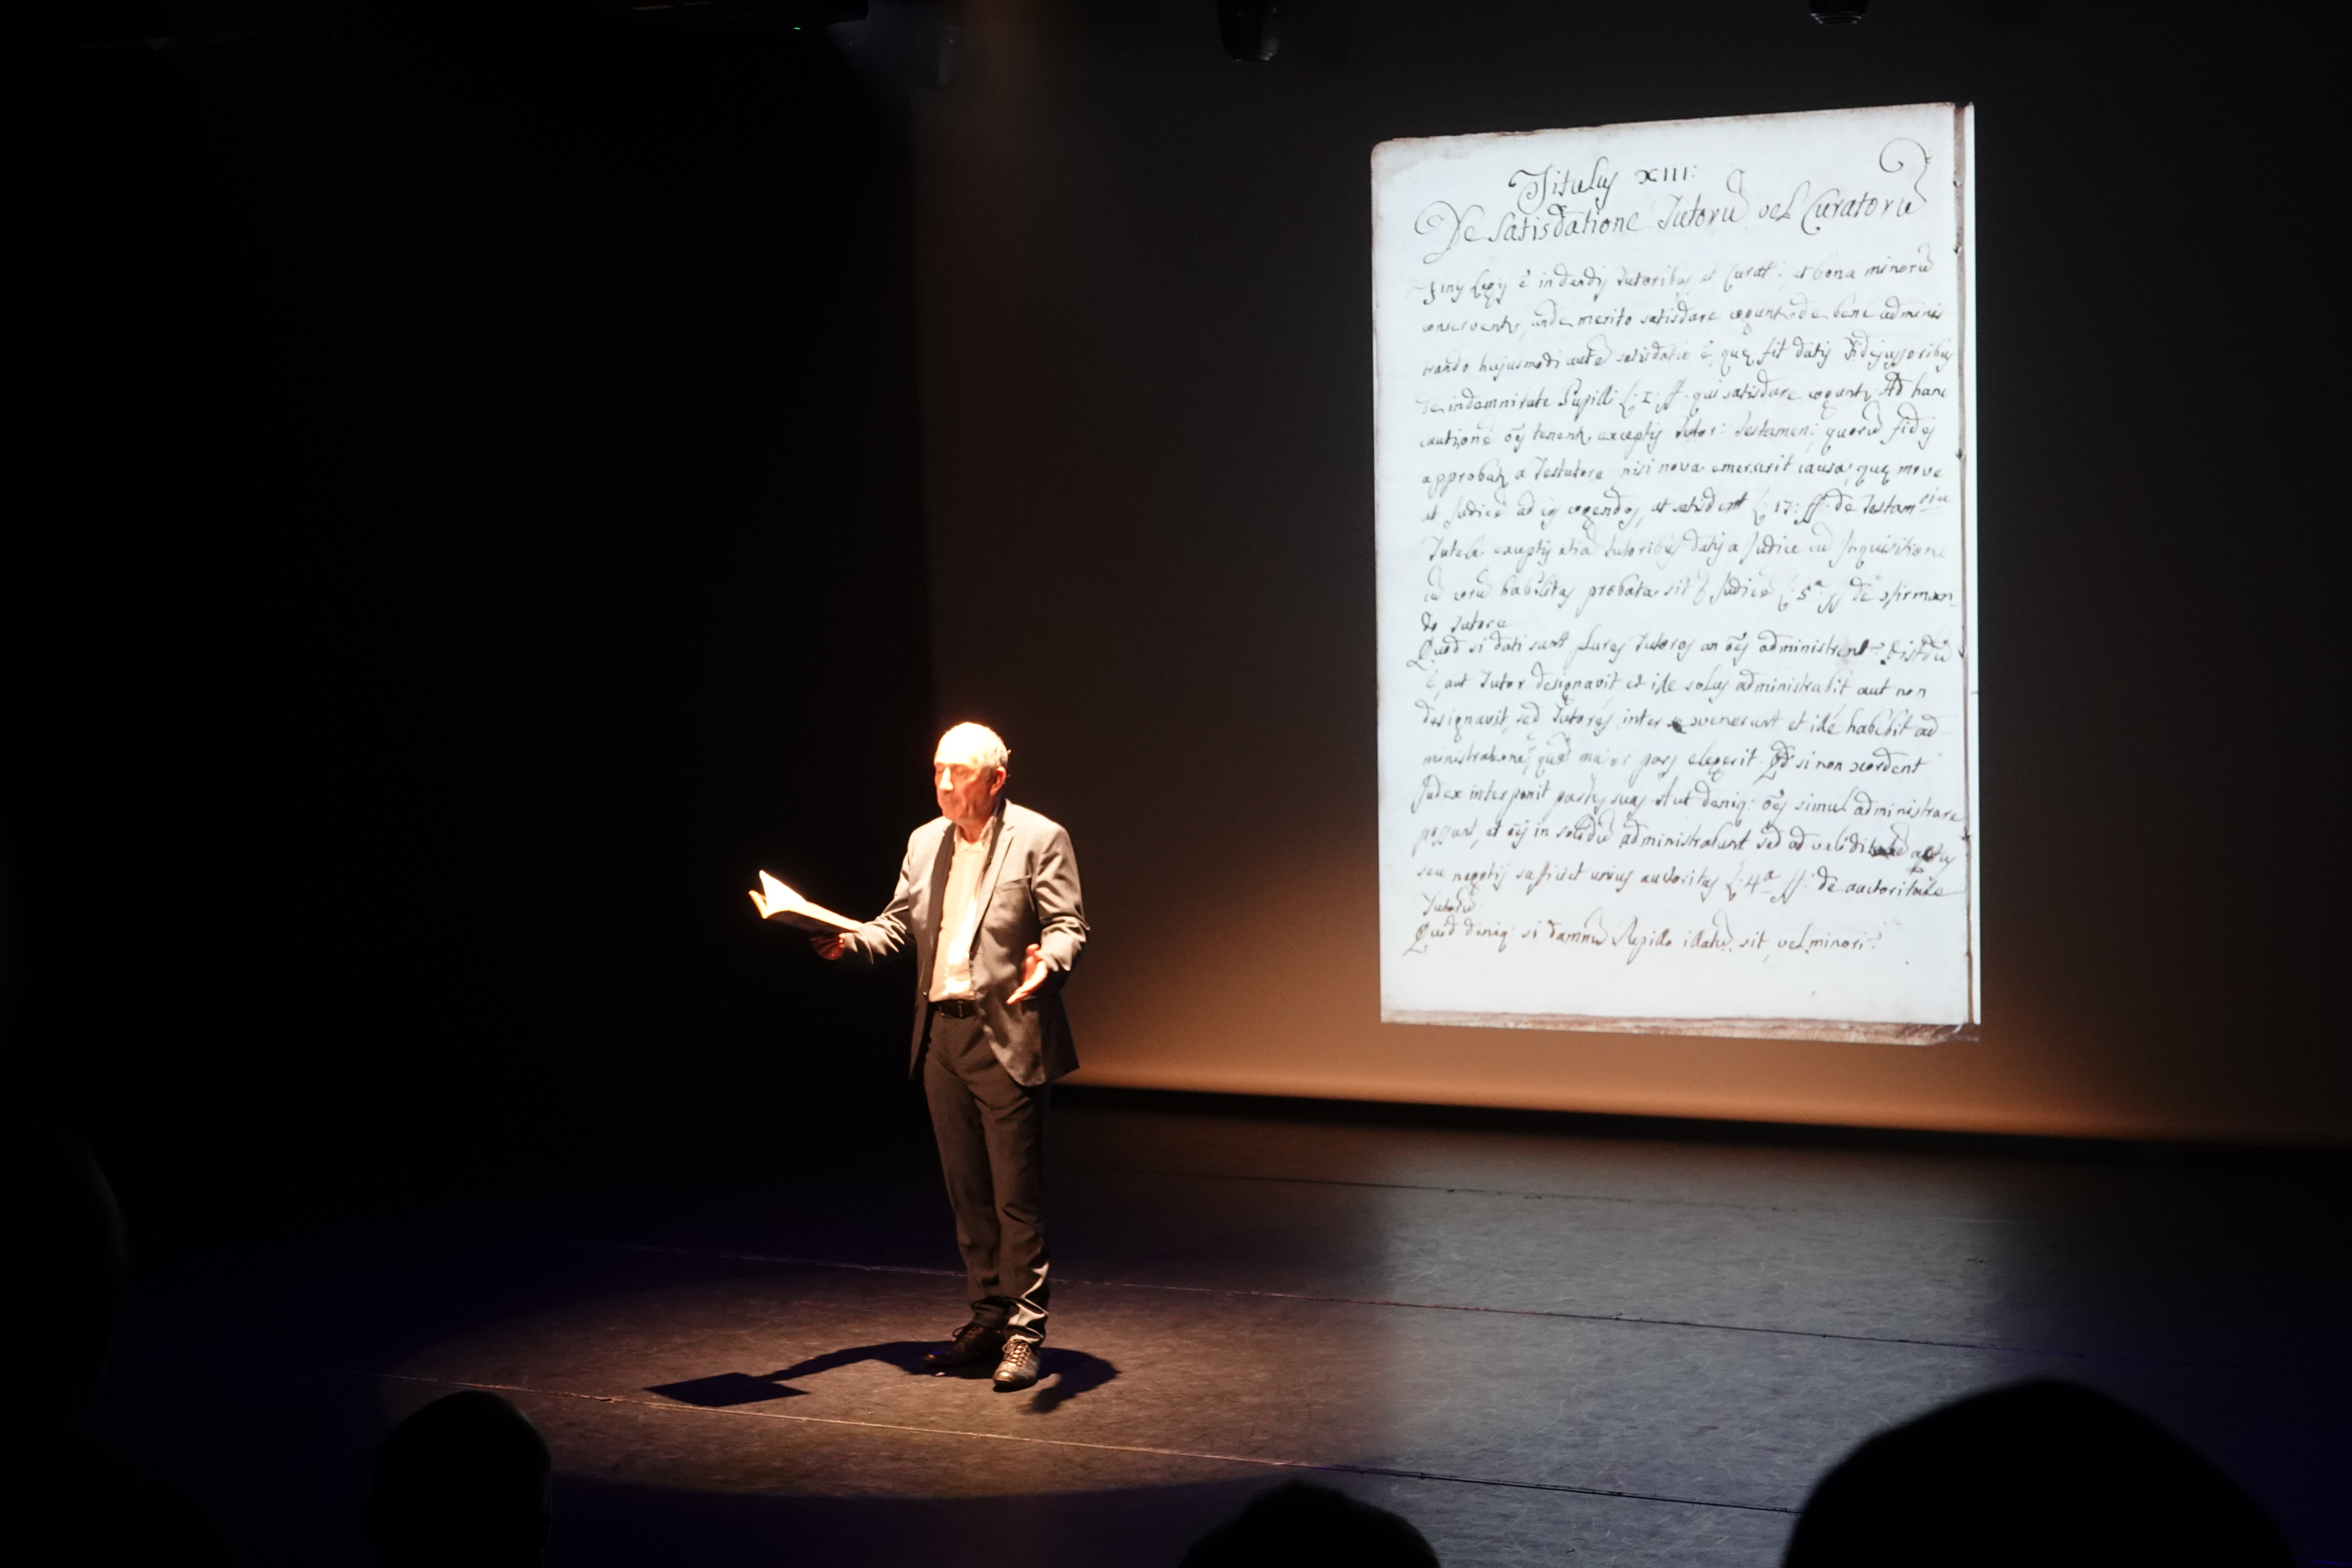 Titulus XIII:
De Satisdatione Tutorũ vel Curatorũ
Finis Legis ẽ in dandis tutoribus et Curat: ut bona minorũ
conserventr, unde merito satisdare cogunt de bene adminis
trando hujusmodi autẽ satisdatio ẽ, quæ fit datis Fidejussoribus
de indemnitate Pupilli L: 1: ff. qui satisdare cogunt. Ad hanc
cautionẽ oẽs tenent, exceptis Tutor: Testamen: quorũ fides
approbatr a Testatore nisi nova emerserit causa, quæ move
at Judicẽ ad eos cogendos, ut satisdent L: 17: ff. de Testam
Tutela exceptis etiã tutoribus datis a Judice cũ Inquisitione
cũ eorũ habilitas probata sit Judice L: 5ª ff de firman
do Tutore
Quod si dati sunt plures Tutores an oẽs administrent?
ẽ, aut Tutor designavit et ille solus administrabit, aut non
designavit, sed Tutores inter se convenerunt et ille habebit ad
ministrationẽ, quẽ major pars elegerit. Qd si non cordent
Judex interponit partes suas. Aut deniq: oẽs simul administrare
possunt, et oẽs in solidũ administrabunt sed ad validitatẽ actus
seu negotij sufficiet unius auctoritas L: 4ª ff. de auctoritate
Tutorũ
Quod deniq: si damnũ Pupillo illatũ sit, vel minori?